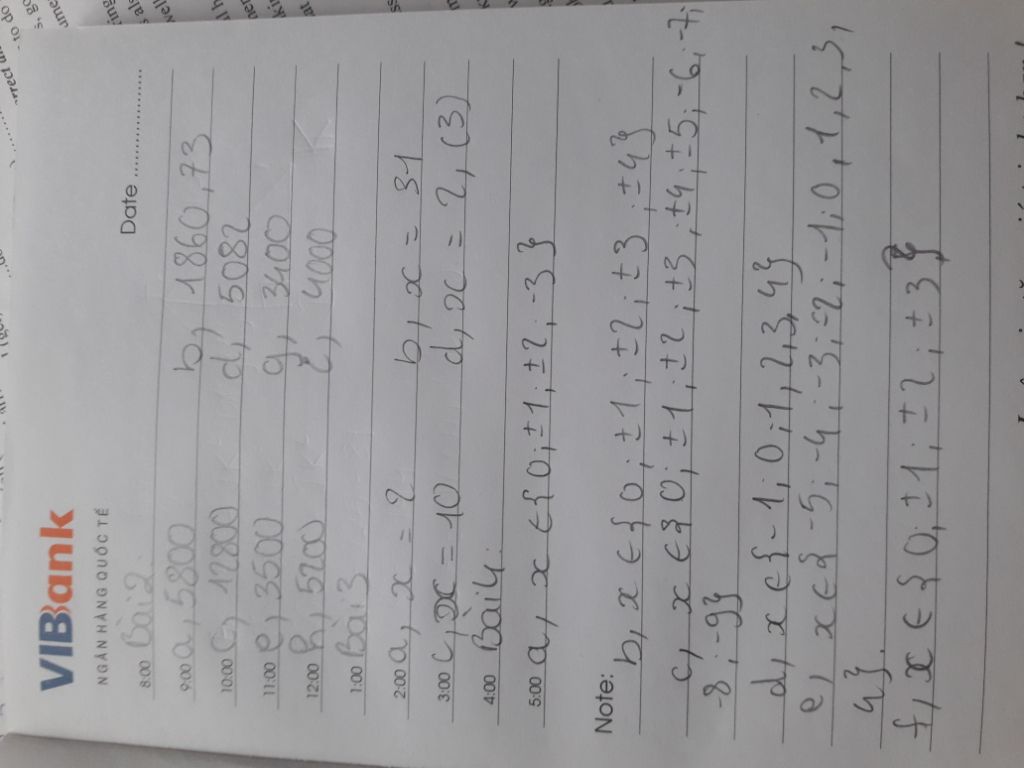 VIBank
NGÂN HÀNG QUỐC TẾ
Date
8:00 Bài 2.
9:00 a, 5800 b, 1860,73
10:00 c, 12800 d, 5082
11:00 e, 3500 g, 3400
12:00 h, 5200 4000
1:00 Bài 3
2:00 a, x = 2 b, x = 31
3:00 c, x = 10 d, x = 2, (3)
4:00 Bài 4:
5:00 a, x ∈ { 0; ±1; ±2; -3}
Note:
b, x ∈ { 0; ±1; ±2; ±3; ±4}
c, x ∈ { 0; ±1; ±2; ±3; ±4; ±5; -6; -7;
-8; -9}
d, x ∈ {-1; 0; 1, 2, 3, 4}
e, x ∈ { -5; -4; -3; -2; -1; 0, 1, 2, 3,
4}.
f, x ∈ { 0; ±1; ±2; ±3}